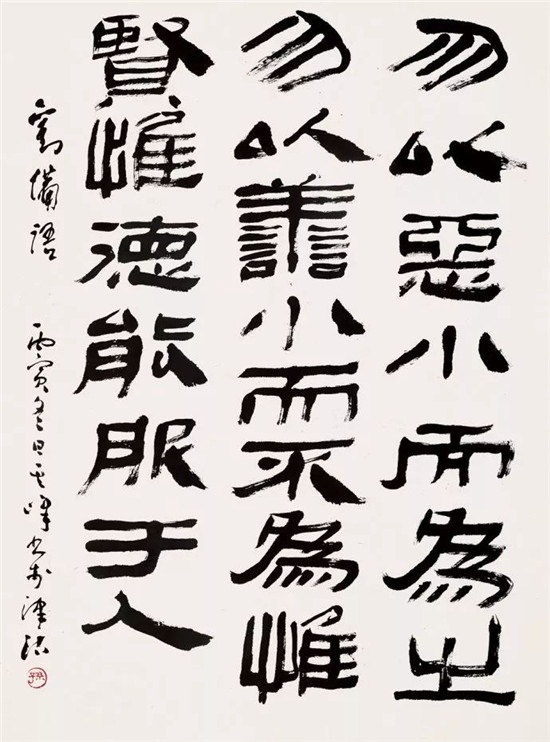 勿以惡小而為之
勿以譱小而不為惟
賢惟德能服于人
劉備語
丙寅冬日其峰書於津沽
孫